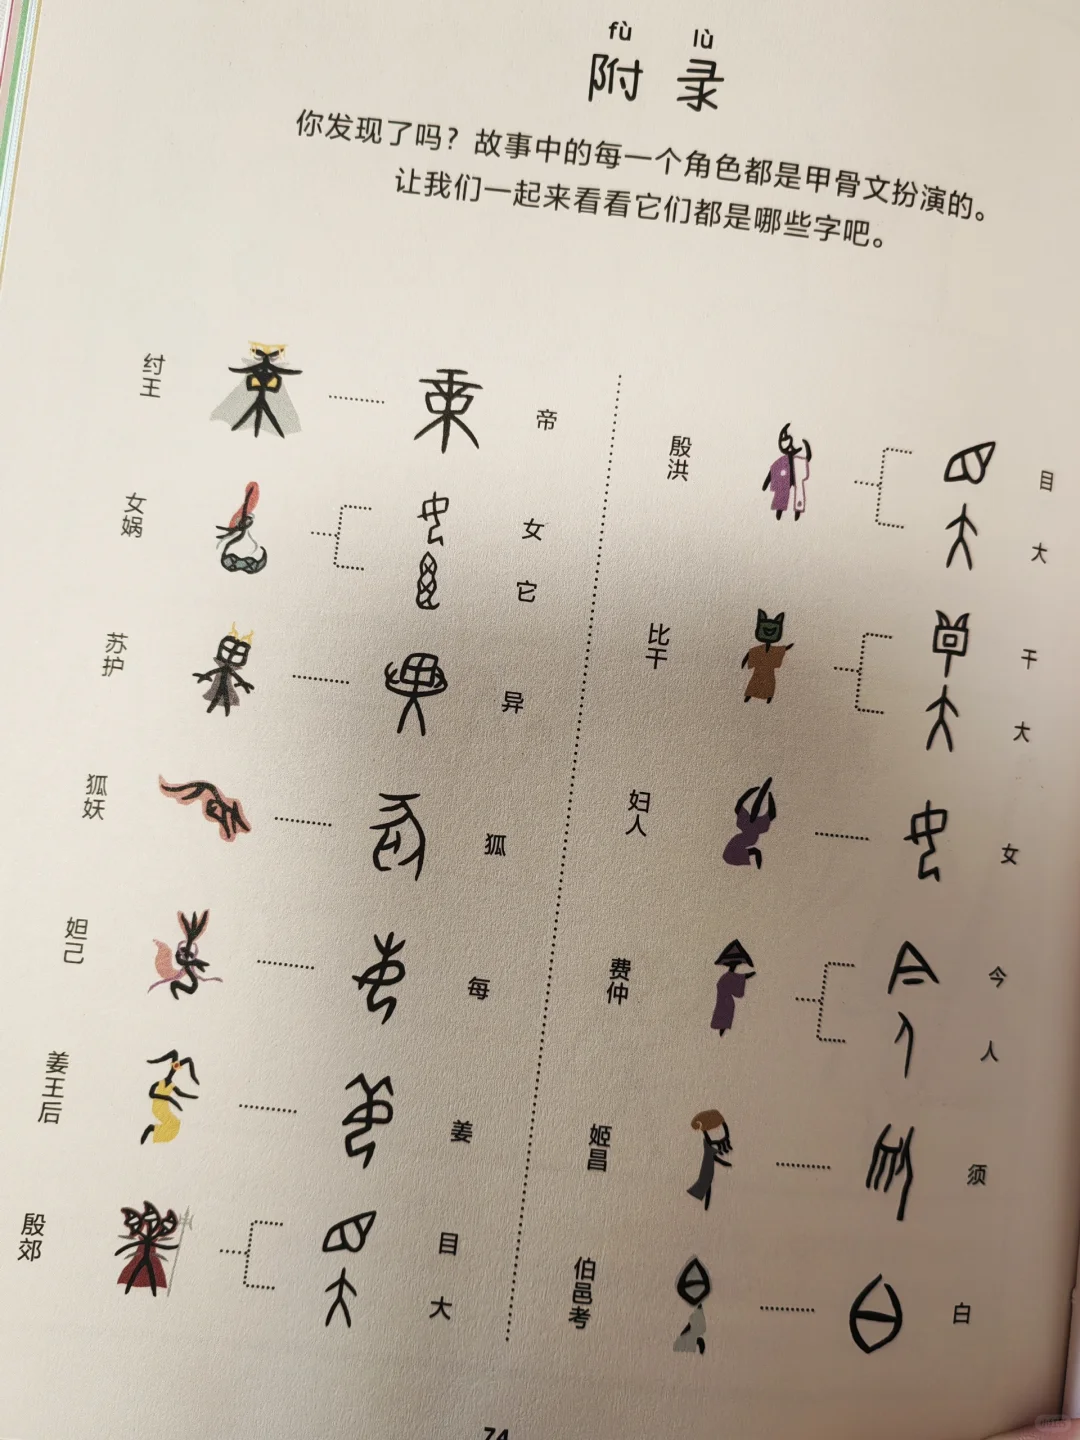 fù lù
附录
你发现了吗？故事中的每一个角色都是甲骨文扮演的。
让我们一起来看看它们都是哪些字吧。
纣王
帝
女娲
女
它
苏护
异
狐妖
狐
妲己
每
姜王后
姜
殷郊
目
大
殷洪
目
大
比干
干
大
妇人
女
费仲
今
人
姬昌
须
伯邑考
白
74